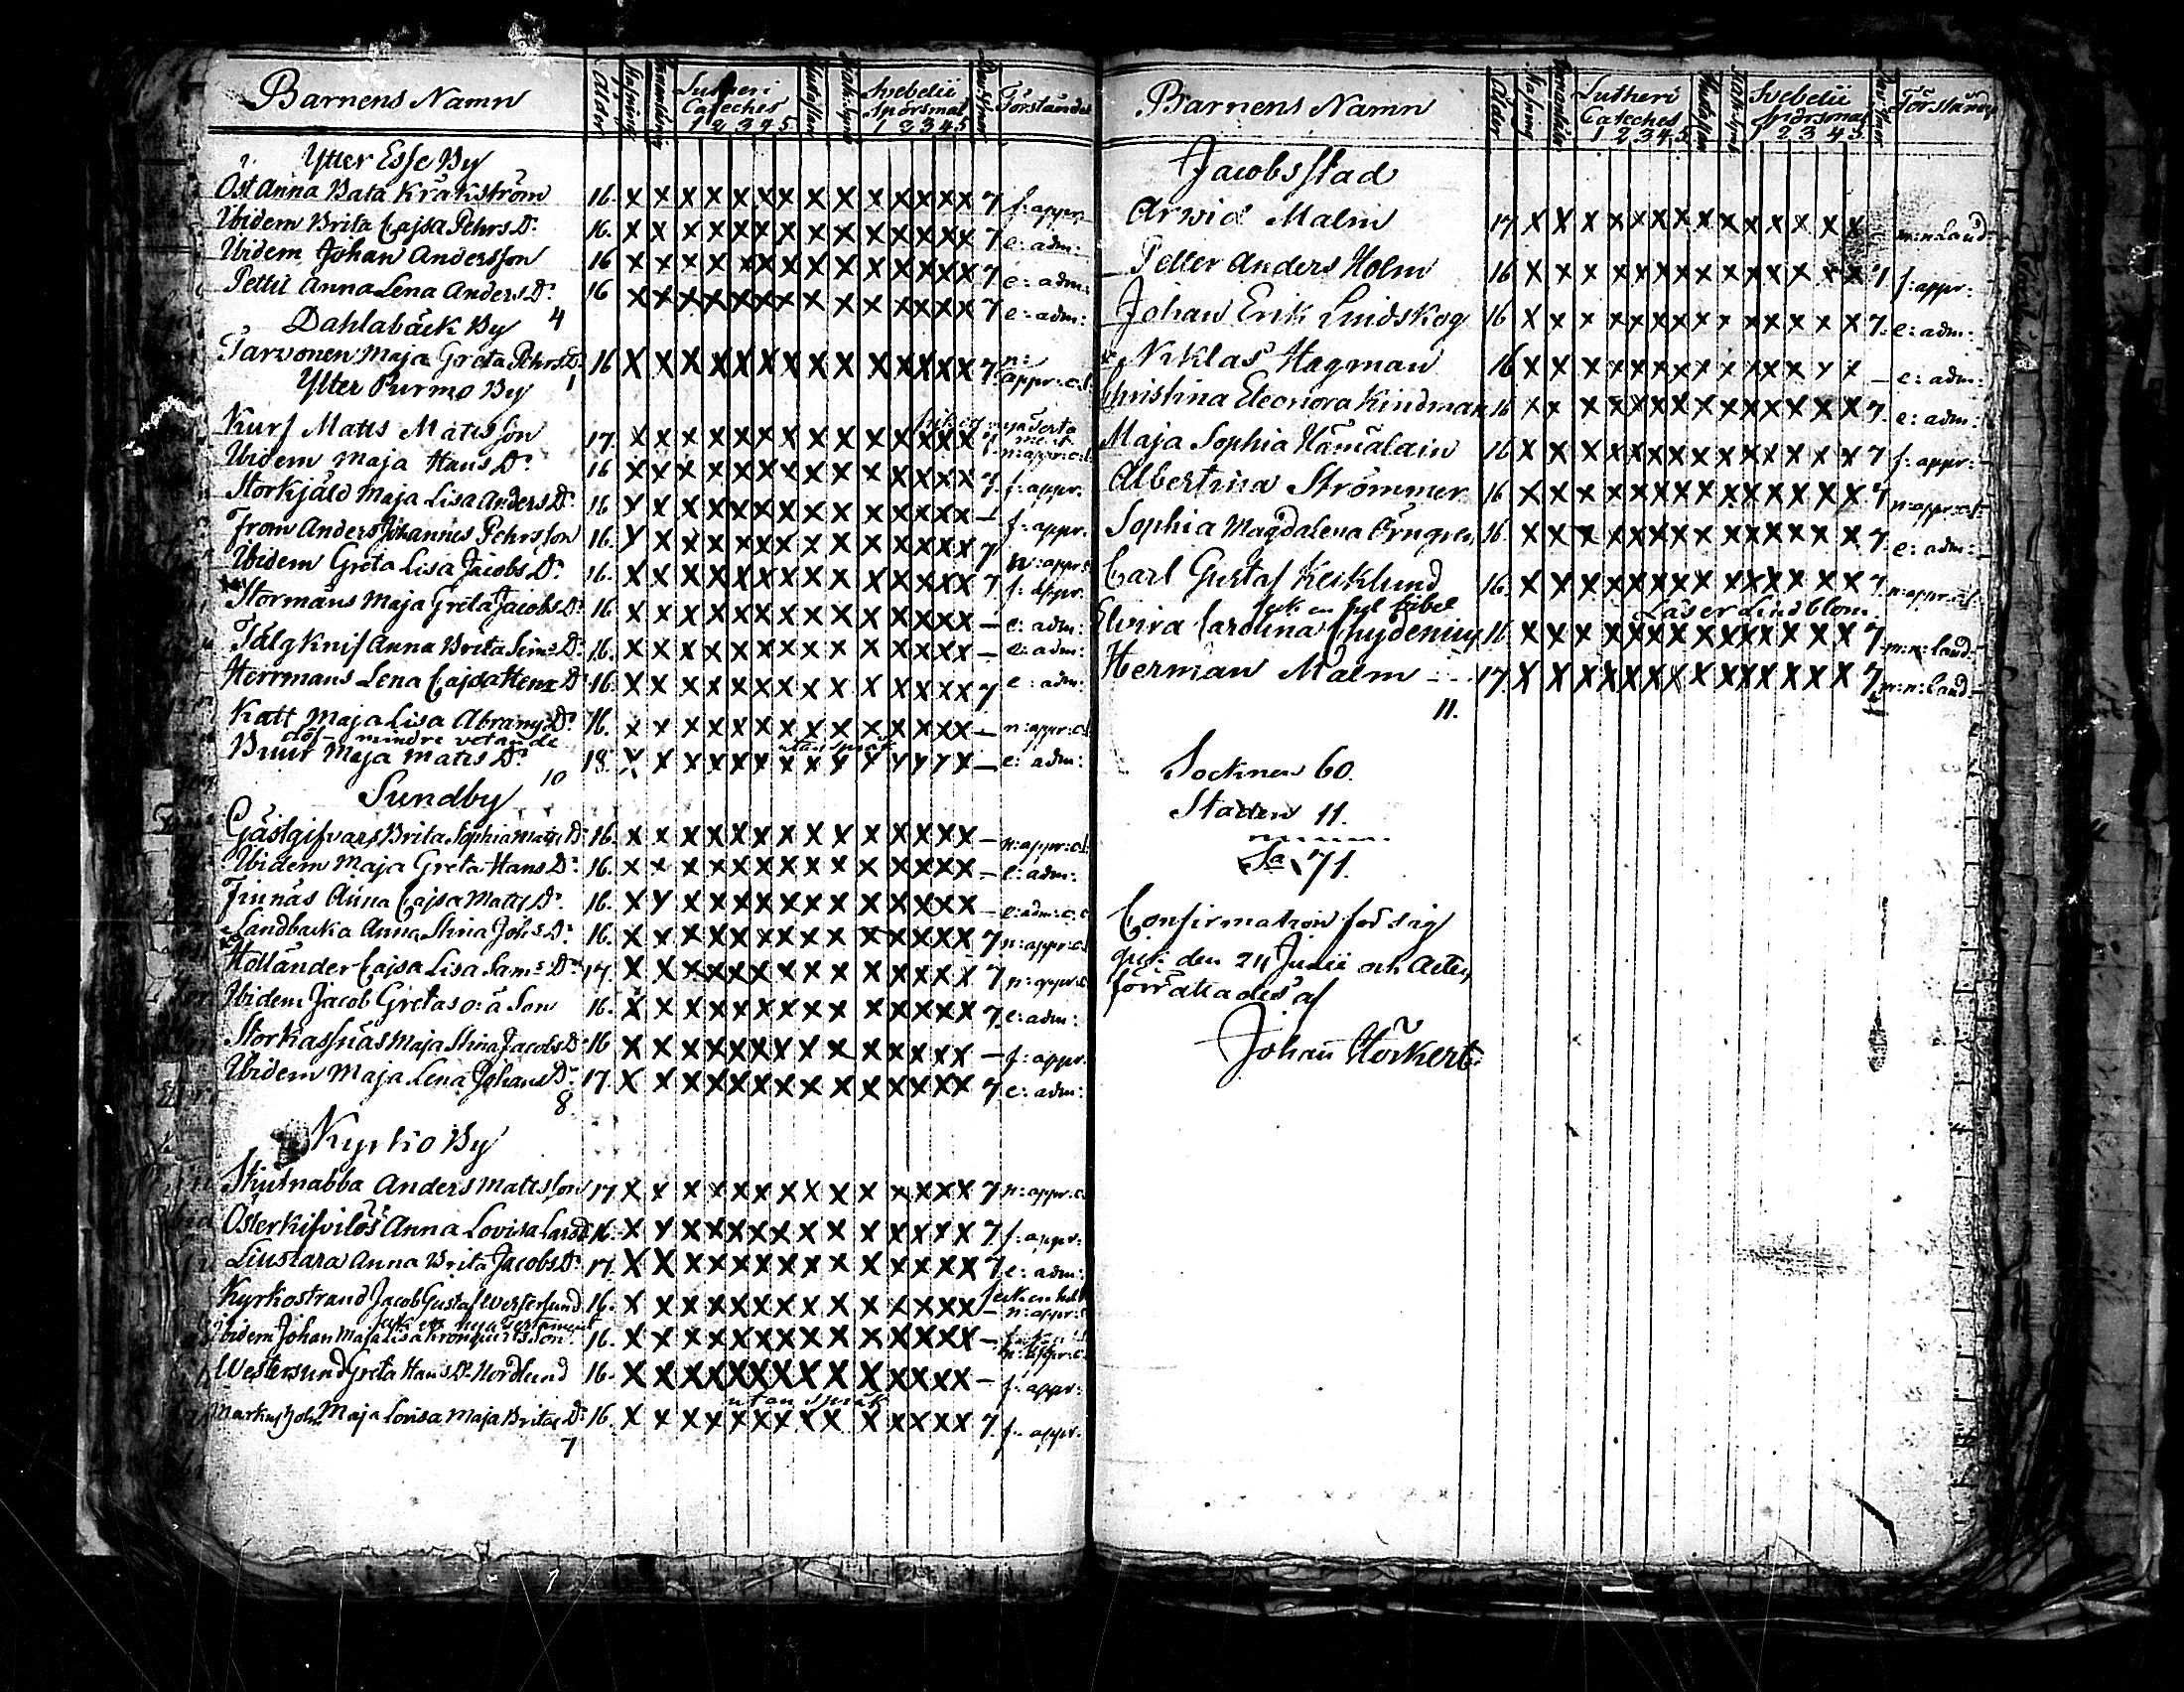 Barnens Namn Ålder Lutheri Cateches 1 2 3 4 5 Svebelii Spörsmål 1 2 3 4 5 Förståndet
Ytter Esse By
Öst Anna Bata Kråkström 16. x x x x x x x x x x x x x x 7 f: appr:
Ibidem Brita Cajsa Pehrs Dr. 16. x x x x x x x x x x x x x x 7 e: adm:
Ibidem Johan Andersson 16 x x x x x x x x x x x x x x 7 e: adm:
Pettii Anna Lena Anders Dr. 16 x x x x x x x x x x x x x x 7 e: adm:
Dahlabäck By 4
Tarvonen Maja Greta Pehrs Dr. 16 x x x x x x x x x x x x x x 7 n: appr: c.l.
Ytter Purmo By 1
Kurf Matts Matts son 17. x x x x x x x x x x x x x x 7
Ibidem Maja Hans Dr. 16 x x x x x x x x x x x x x x 7 f: appr:
Storkjäld Maja Lisa Anders Dr. 16 x x x x x x x x x x x x x x — f: appr:
From Anders Johannes Pehrsson 16. x x x x x x x x x x x x x x 7 n: appr:
Ibidem Greta Lisa Jacobs Dr. 16. x x x x x x x x x x x x x x 7 f: appr:
Stormåns Maja Greta Jacobs Dr. 16. x x x x x x x x x x x x x x — e: adm:
Tålgknif Anna Brita Sims Dr. 16. x x x x x x x x x x x x x x — e: adm:
Herrmans Lena Cajsa Henr Dr. 16. x x x x x x x x x x x x x x 7 e: adm:
Katt Maja Lisa Abrams Dr. 16. x x x x x x x x x x x x x x — n: appr: c.l.
döf — mindre vetande utan språk
Buur Maja Matts Dr. 18. x x x x x x x x x x x x x x — e: adm:
10
Sundby
Gästgifvars Brita Sophia Matts Dr. 16. x x x x x x x x x x x x x x — n: appr: c.l.
Ibidem Maja Greta Hans Dr. 16. x x x x x x x x x x x x x x — e: adm:
Finnäs Anna Cajsa Matts Dr. 16. x x x x x x x x x x x x x x — e: adm:
Sandbacka Anna Stina Johs Dr. 16. x x x x x x x x x x x x x x 7 n: appr: c.l.
Holländer Cajsa Lisa Sams Dr. 17. x x x x x x x x x x x x x x 7 n: appr:
Ibidem Jacob Gretas o: ä Son 16. x x x x x x x x x x x x x x 7 e: adm:
Storkassnäs Maja Stina Jacobs Dr. 16 x x x x x x x x x x x x x x — f: appr:
Ibidem Maja Lena Johans Dr. 17. x x x x x x x x x x x x x x 7 e: adm:
8
Kyrko By
Skutnabba Anders Mattsson 17 x x x x x x x x x x x x x x 7 n: appr:
Österkifvilös Anna Lovisa Lars Dr. 16. x x x x x x x x x x x x x x 7 f: appr:
Liustara Anna Brita Jacobs Dr. 17. x x x x x x x x x x x x x x 7 e: adm:
Kyrkostrand Jacob Gustaf Westerlund 16. x x x x x x x x x x x x x x — n: appr:
fick en nya Testament
Ibidem Johan Maja Lisa Kronqvists Son 16. x x x x x x x x x x x x x x —
Westersund Greta Hans Dr. Nordlund 16. x x x x x x x x x x x x x x — f: appr:
utan språk
Maja Lovisa Maja Britas Dr. 16. x x x x x x x x x x x x x x 7 f: appr:
7
Barnens Namn Ålder Lutheri Cateches 1 2 3 4 5 Svebelii Spörsmål 1 2 3 4 5 Förståndet
Jacobsstad
Arwid Malm 17 x x x x x x x x x x x x x x m: n: laud:
Petter Anders Holm 16 x x x x x x x x x x x x x x 7 f: appr:
Johan Erik Lindskog 16 x x x x x x x x x x x x x x 7. e: adm:
Niklas Hagman 16 x x x x x x x x x x x x x x — e: adm:
Christina Eleonora Kindman 16 x x x x x x x x x x x x x x 7. e: adm:
Maja Sophia Hämäläin 16 x x x x x x x x x x x x x x 7 f: appr:
Albertina Strömmer 16 x x x x x x x x x x x x x x 7 n: appr: c.l.
Sophia Magdalena Örngren 16. x x x x x x x x x x x x x x 7. e: adm:
Carl Gustaf Keiklund 16. x x x x x x x x x x x x x x 7. n: appr: c.l.
fick en hel bibel Läser Lindblom
Elvira Carolina Chydenius 16 x x x x x x x x x x x x x x 7. m: n: laud:
Herman Malm 17 x x x x x x x x x x x x x x 7 m: n: laud:
11.
Socknen 60.
Staden 11.
Sa 71.
Confirmation för sig
gick den 24 Junii och Acten
förrättades af
Johan Hörkert